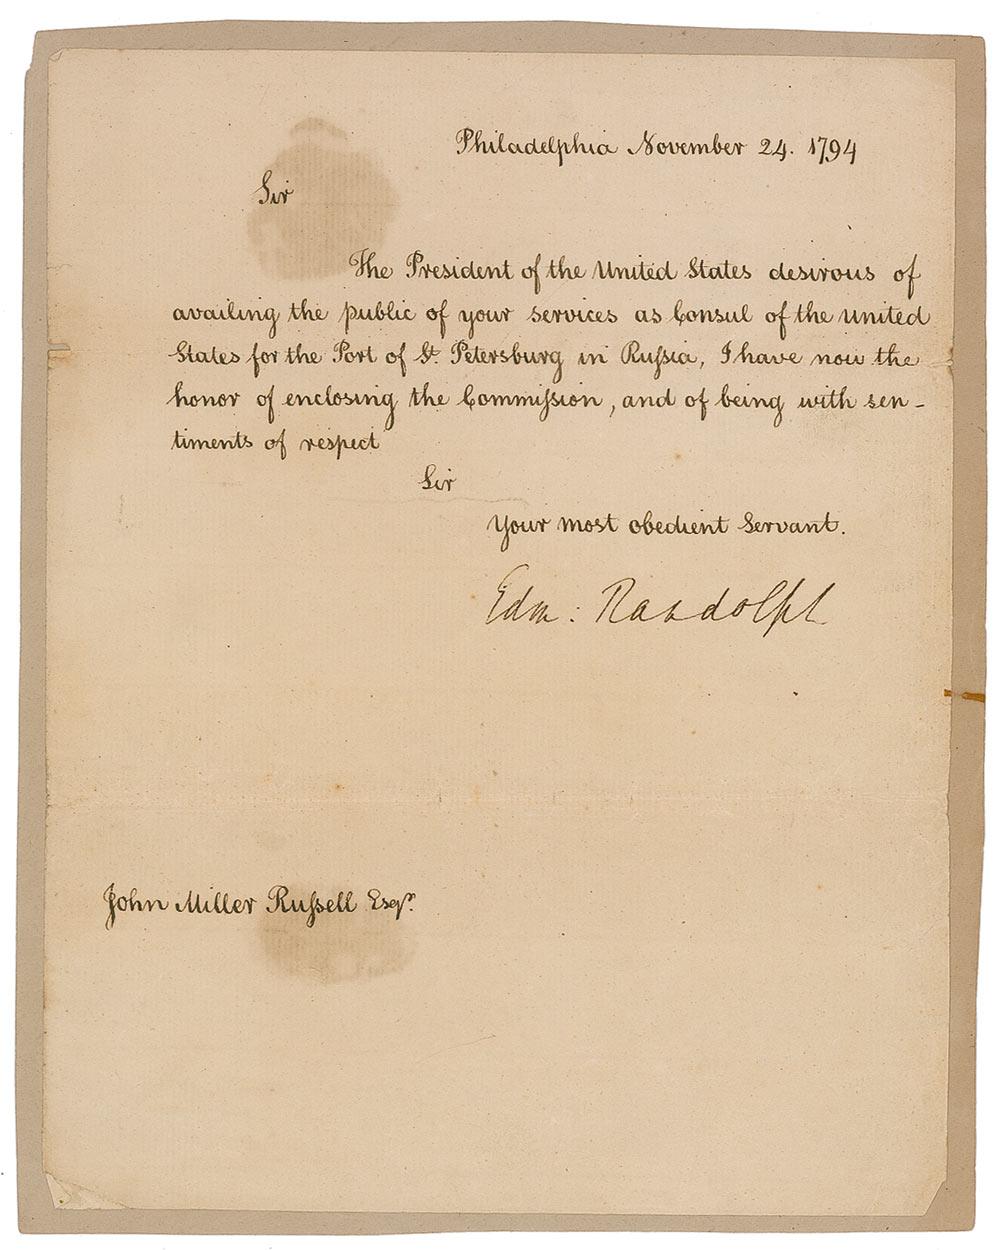 Philadelphia November 24. 1794
Sir
The President of the United States desirous of
availing the public of your services as Consul of the United
States for the Port of St. Petersburg in Ruſsia, I have now the
honor of enclosing the Commiſsion, and of being with sen-
timents of respect
Sir
Your most obedient Servant.
Edm: Randolph
John Miller Ruſsell Esqr.